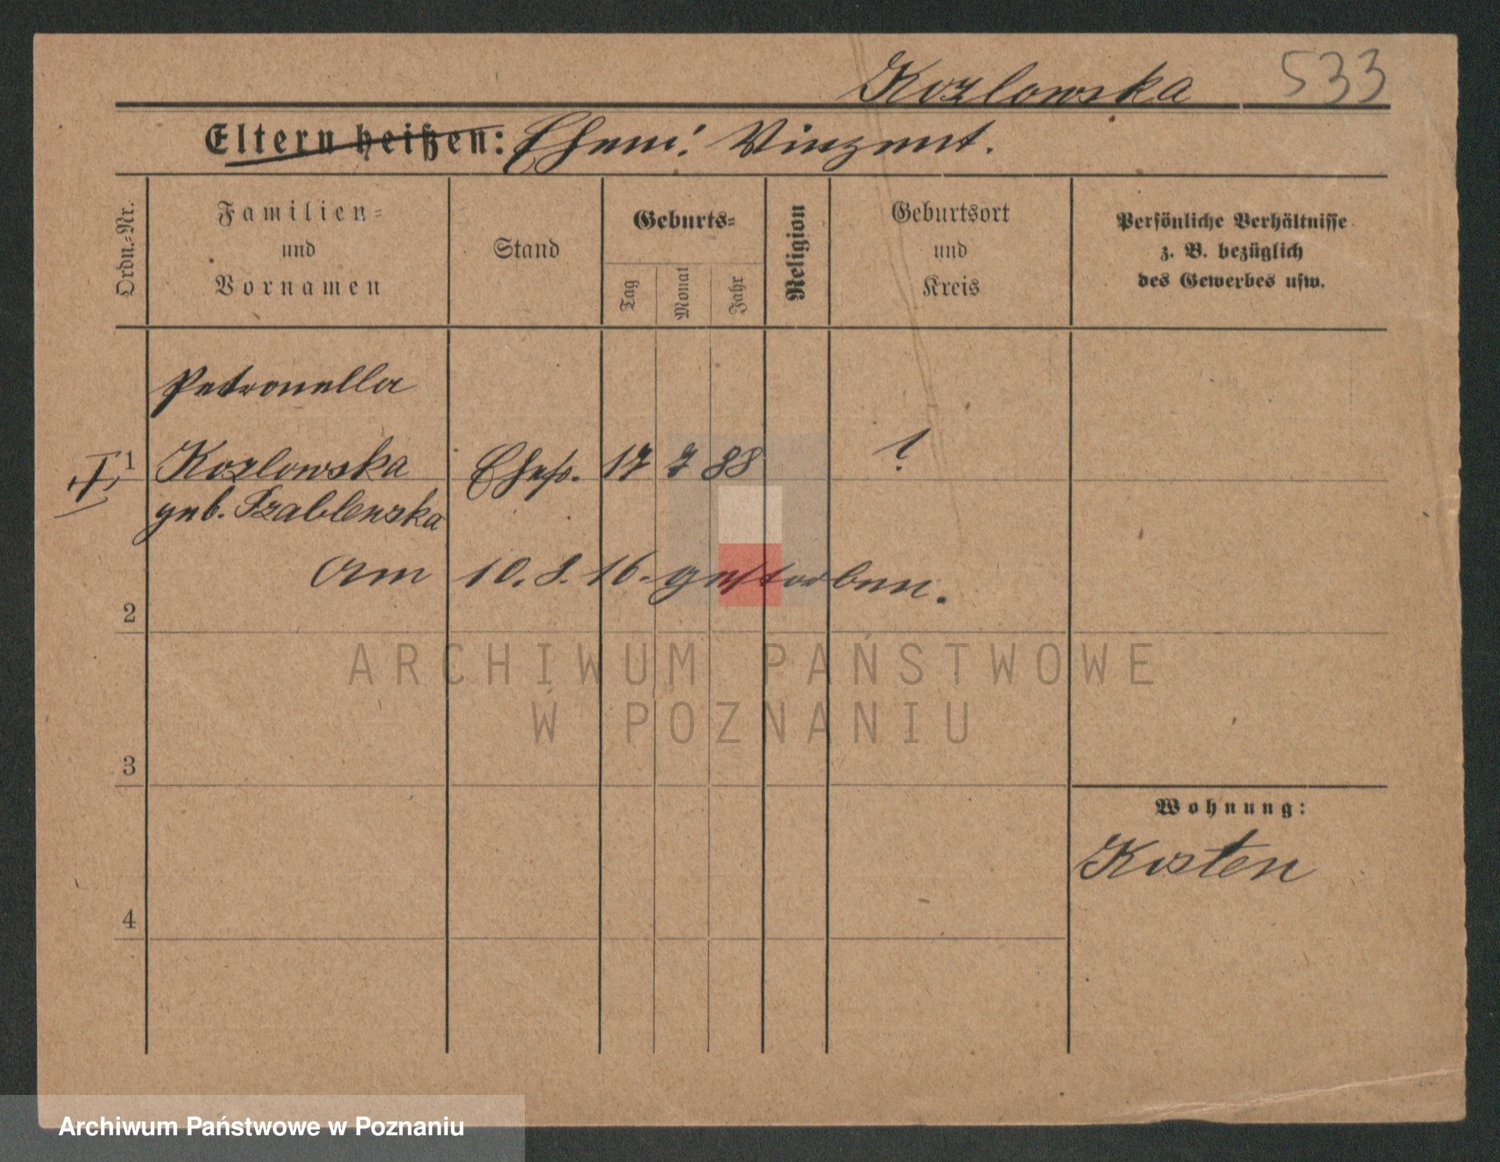 Kozlowska 533
Eltern heißen: Ehem: Vinzent.
Ordn.-Nr.
Familien-
und
Vornamen
Stand
Geburts-
Tag
Monat
Jahr
Religion
Geburtsort
und
Kreis
Persönliche Verhältnisse
z. B. bezüglich
des Gewerbes usw.
Petronella
1 Kozlowska Ehefr. 17 7 88 ?
geb.
am 10. 8. 16. gestorben.
2
ARCHIWUM PAŃSTWOWE
W POZNANIU
3
Wohnung:
Kosten
4
Archiwum Państwowe w Poznaniu